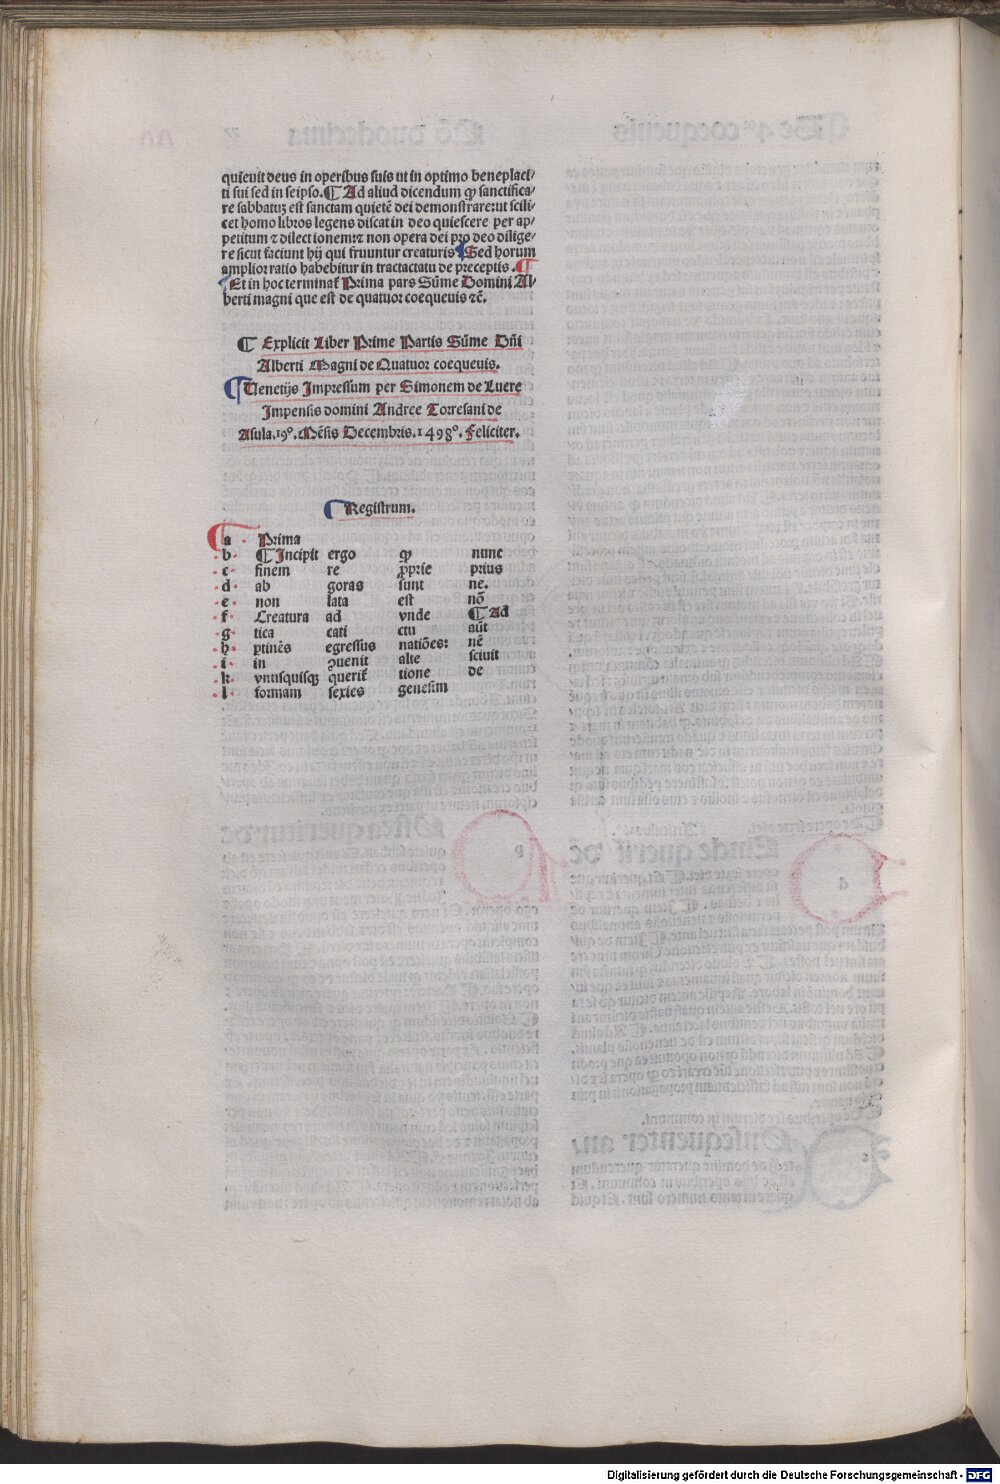 quieuit deus in operibus suis ut in optimo beneplaci/
ti sui sed in seipso. ¶ Ad aliud dicendum ꝙ sanctifica/
re sabbatuꝫ est sanctam quietē dei demonstrare:ut scili/
cet homo libros legens discat in deo quiescere per ap/
petitum ⁊ dilectionem:⁊ non opera dei pro deo dilige/
re sicut faciunt hij qui fruuntur creaturis ¶ Sed horum
amplior ratio habebitur in tractactatu de preceptis. ¶
Et in hoc terminat̄ Prima pars Sūme Domini Al/
berti magni que est de quatuor coequeuis ⁊c̄.
¶ Explicit Liber Prime Partis Sūme Dn̄i
Alberti Magni de Quatuor coequeuis.
¶ Venetijs Impressum per Simonem de Luere
Impensis domini Andree Torresani de
Asula.19°. Mēsis Decembris.1498°. Feliciter.
¶ Registrum.
a · Prima
·b· ¶ Incipit ergo ꝙ nunc
·c· finem re ꝓprie prius
·d· ab goras sunt ne.
·e· non lata est nō
·f· Creatura ad vnde ¶ Ad
·g· tica cati ctu aūt
·h· ꝑtinēs egressus natiōes: nē
·i· in ꝯuenit alte sciuit
·k· vnusquisqꝫ querit̄ tione de
·l· formam sexies genesim
Digitalisierung gefördert durch die Deutsche Forschungsgemeinschaft - DFG